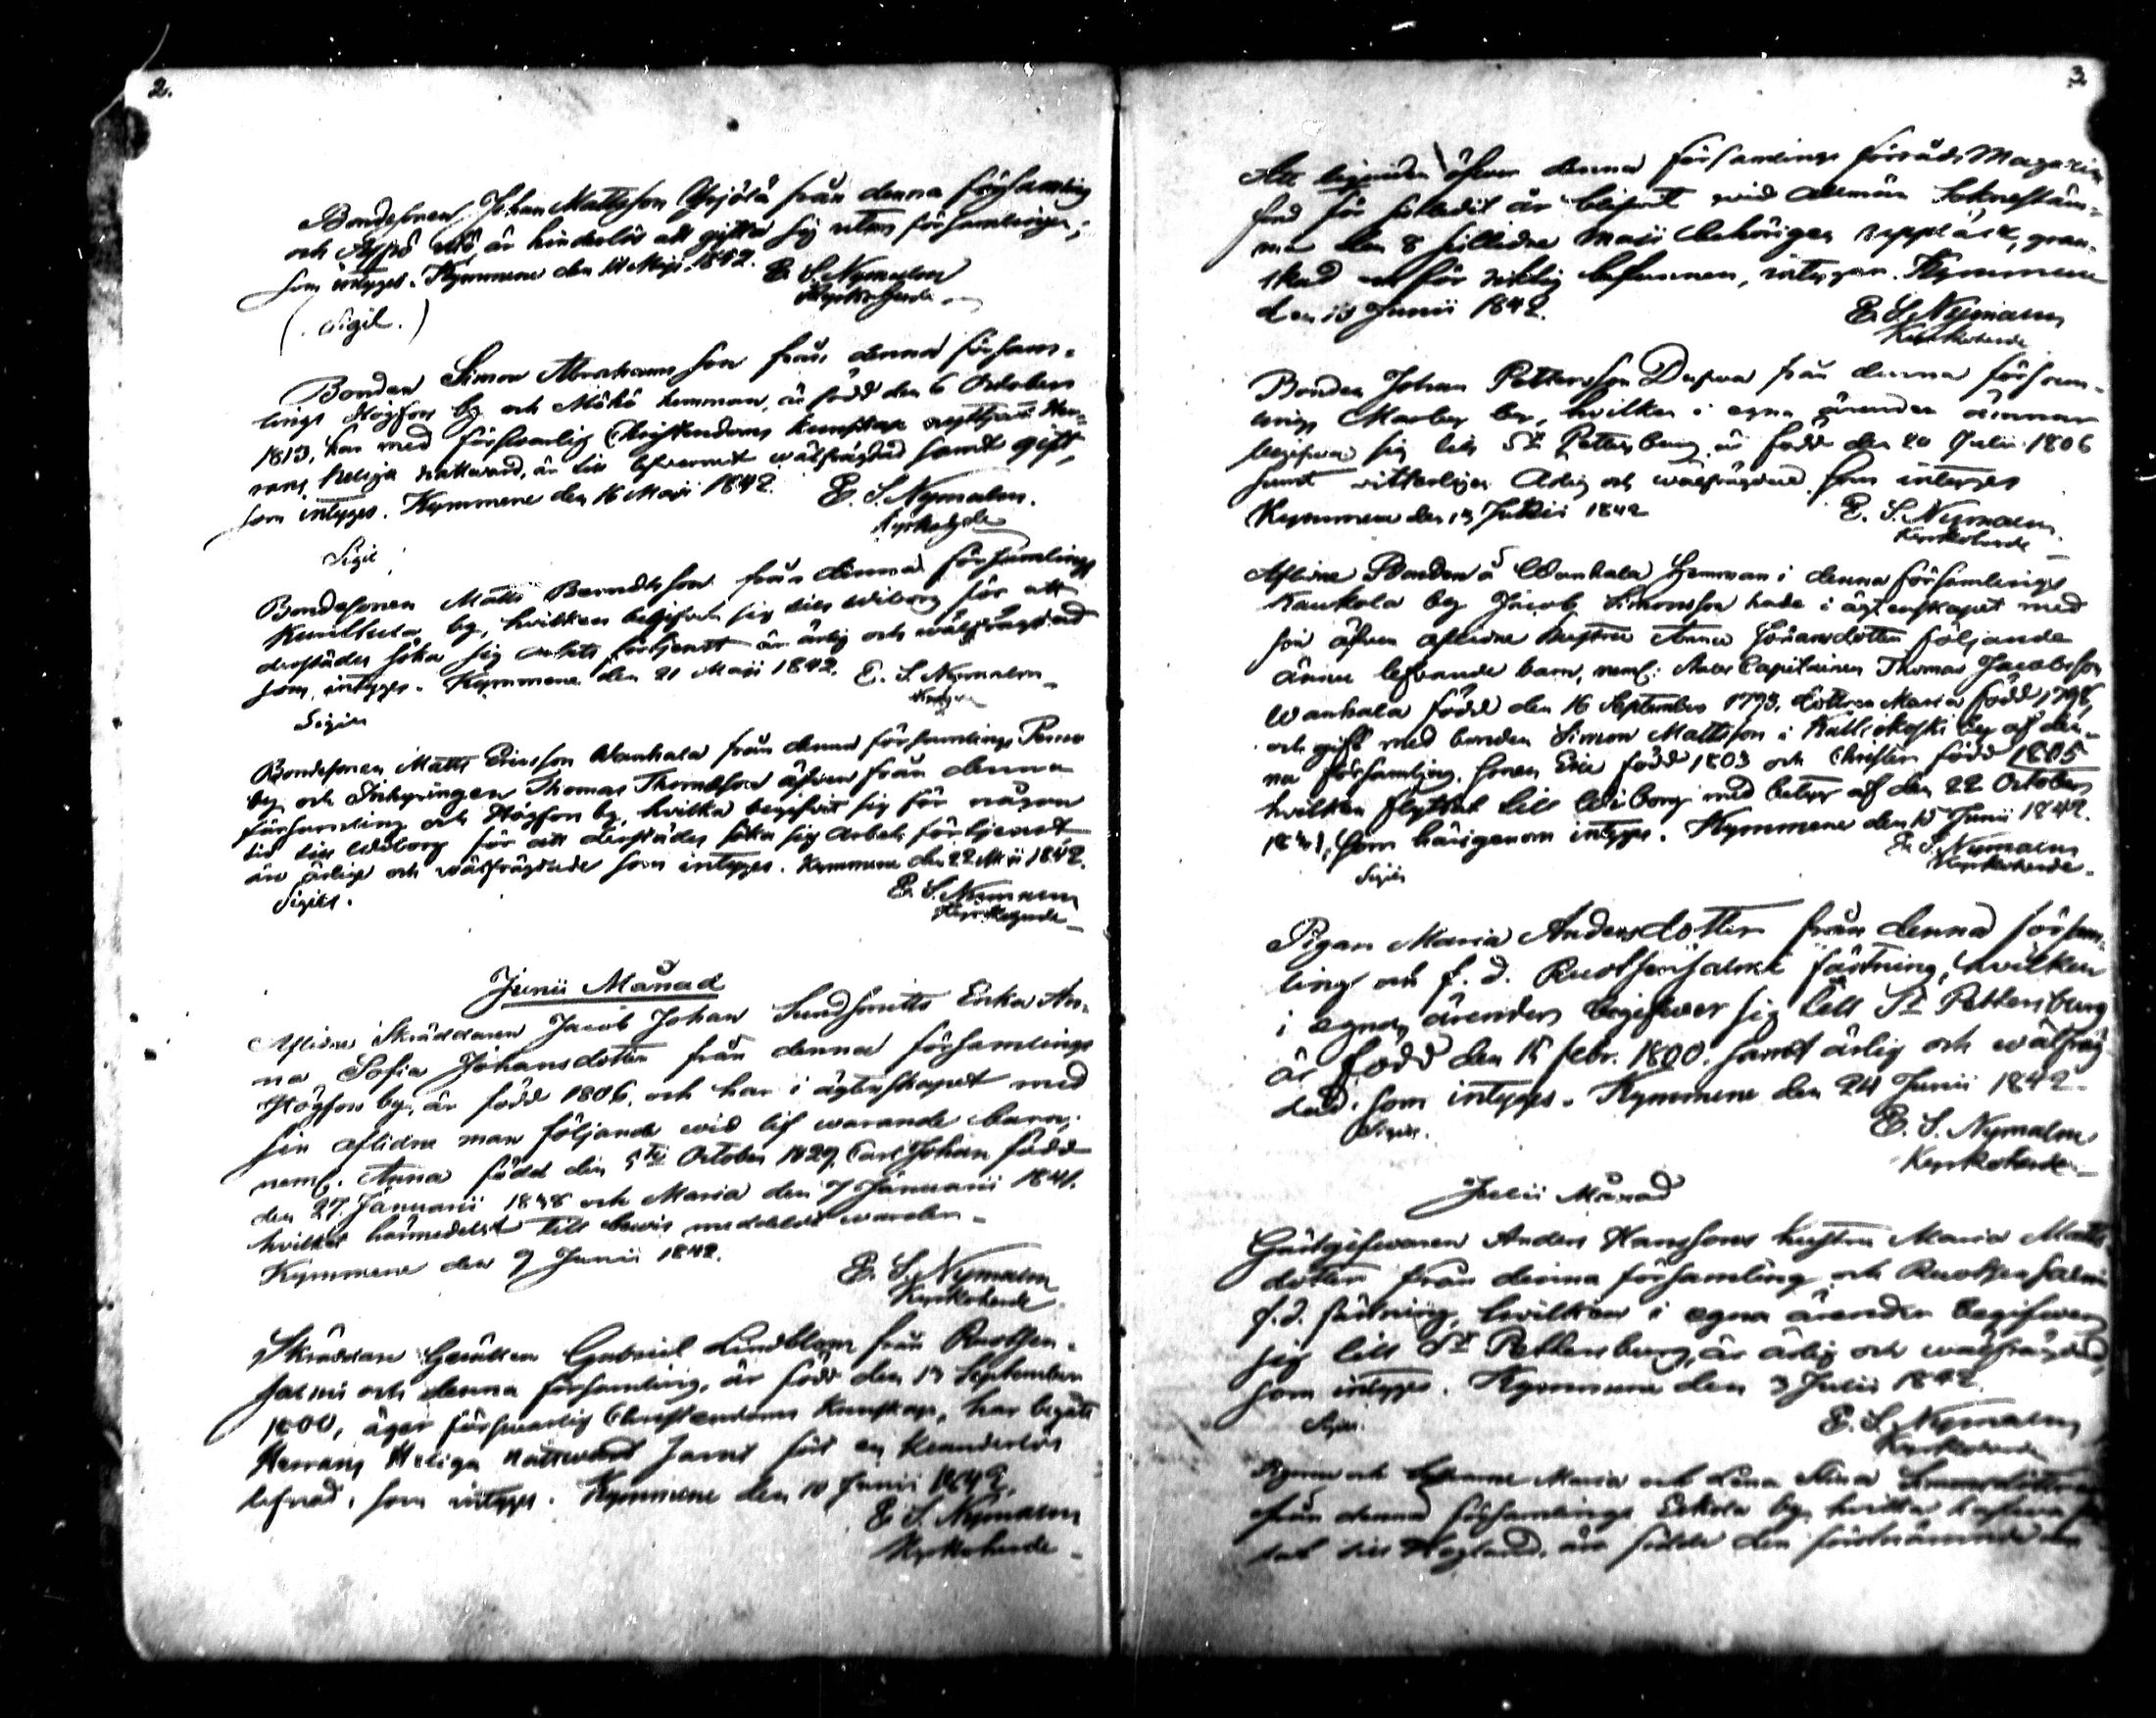 2.
Bondesonen Johan Mattsson Yrjölä från denna församling
och Aspö är hinderlös att gifta sig utom församlingen,
som intyges. Kymmene den 14 Maji 1842.
E. S. Nymalm
Kyrkoherde
(Sigil.)
Bonden Simon Abrahamsson från denna försam-
lings Högfors by och Mökö hemman, är född den 6 October
1813, har med förswarlig Christendoms kunskap begått Her-
rans heliga nattward, är till lefwernet wälfrägdad samt gift,
som intyges. Kymmene den 16 Maji 1842.
E. S. Nymalm.
Kyrkoherde
Sigil
Bondesonen Matts Berndtsson från denna församlings
by, hvilken begifver sig till Wiborg för att
derstädes söka sig arbets förtjenst är ärlig och wälfrägdad
som intyges. Kymmene den 21 Maji 1842.
E. S. Nymalm
Sigill
Bondesonen Matts Ericsson Wanhala från denna församlings
by och Inhysingen Thomas Thomasson äfwen från denna
församling och Högfors by, hvilka begifvit sig för någon
tid till Wiborg för att derstädes söka sig arbets förtjenst
äro ärlige och wälfrägdade som intyges. Kymmene den 22 Maji 1842.
Sigill.
E. S. Nymalm
Kyrkoherde
Junii Månad
Aflidne Skräddaren Jacob Johan Enka An-
na Sofia Johansdotter från denna församlings
Högfors by, är född 1806, och har i ägtenskapet med
sin aflidne man följande wid lif warande barn,
neml. Anna född den 5te October 1829, Carl Johan född
den 27 Januarii 1838 och Maria den 7 Januarii 1841.
hvilket härmedelst till bewis meddelas
Kymmene den 9 Junii 1842.
E. S. Nymalm
Kyrkoherde
Skräddare Gesällen Gabriel Lindblom från Ruotsen-
salmi och denna församling, är född den 13 September
1800, äger förswarlig Christendoms kunskap, har begått
Herrans Heliga nattward samt fört en klanderlös
lefnad, som intyges. Kymmene den 10 Junii 1842.
E. S. Nymalm
Kyrkoherde
3
Att öfwer denna församlings förråds Magazin
för är blifwit wid allmän Sokнestäm-
ma den 8 sistledne Maji behörigen uppläst, gran-
skad och för riktig befunnen, intygar. Kymmene
den 13 Junii 1842.
E. S. Nymalm
Kyrkoherde
Bonden Johan Pettersson från denna försam-
lings by, hvilken i egna ärender ämnar
begifwa sig till St Petersburg är född den 20 Julii 1806
samt witterligen ärlig och wälfrägdad som intyges
Kymmene den 13 Junii 1842
E. S. Nymalm
Kyrkoherde
Aflidne Bonden å Wanhala Hemman i denna församlings
Kaukola by Jacob Simonsson hade i ägtenskapet med
sin äfwen aflidne hustru Anna Johansdotter följande
ännu lefwande barn, neml: Capitainen Thomas Jacobsson
Wanhala född den 16 September 1793, dottren Maria född 1798,
och gift med bonden Simon Mattsson i Kalliokoski by af den-
na församling, sonen Eric född 1803 och Christer född 1805
hvilken flyttat till Wiborg med betyg af den 22 October
1831, som härigenom intyges. Kymmene den 15 Junii 1842.
E. S. Nymalm
Kyrkoherde
Sigill
Pigan Maria Andersdotter från denna försam-
ling och f. d. Ruotsensalmi fästning, hvilken
i egna ärender begifwer sig till St Pettersburg
är född den 15 febr. 1800, samt ärlig och wälfräg-
dad, som intyges. Kymmene den 24 Junii 1842.
Sigill.
E. S. Nymalm
Kyrkoherde
Julii Månad
Gästgifwaren Anders Hanssons hustru Maria Matts
dotter från denna församling och Ruotsensalmi
f. d. fästning, hvilken i egna ärender begifwer
sig till St Pettersburg, är ärlig och wälfrägdad,
som intyges. Kymmene den 3 Julii 1842.
E. S. Nymalm
Kyrkoherde
och Maria och Lena Stina Simonsdöttrar
från denna församlings by, hvilka
till Hogland, äro födde den förstnämnde